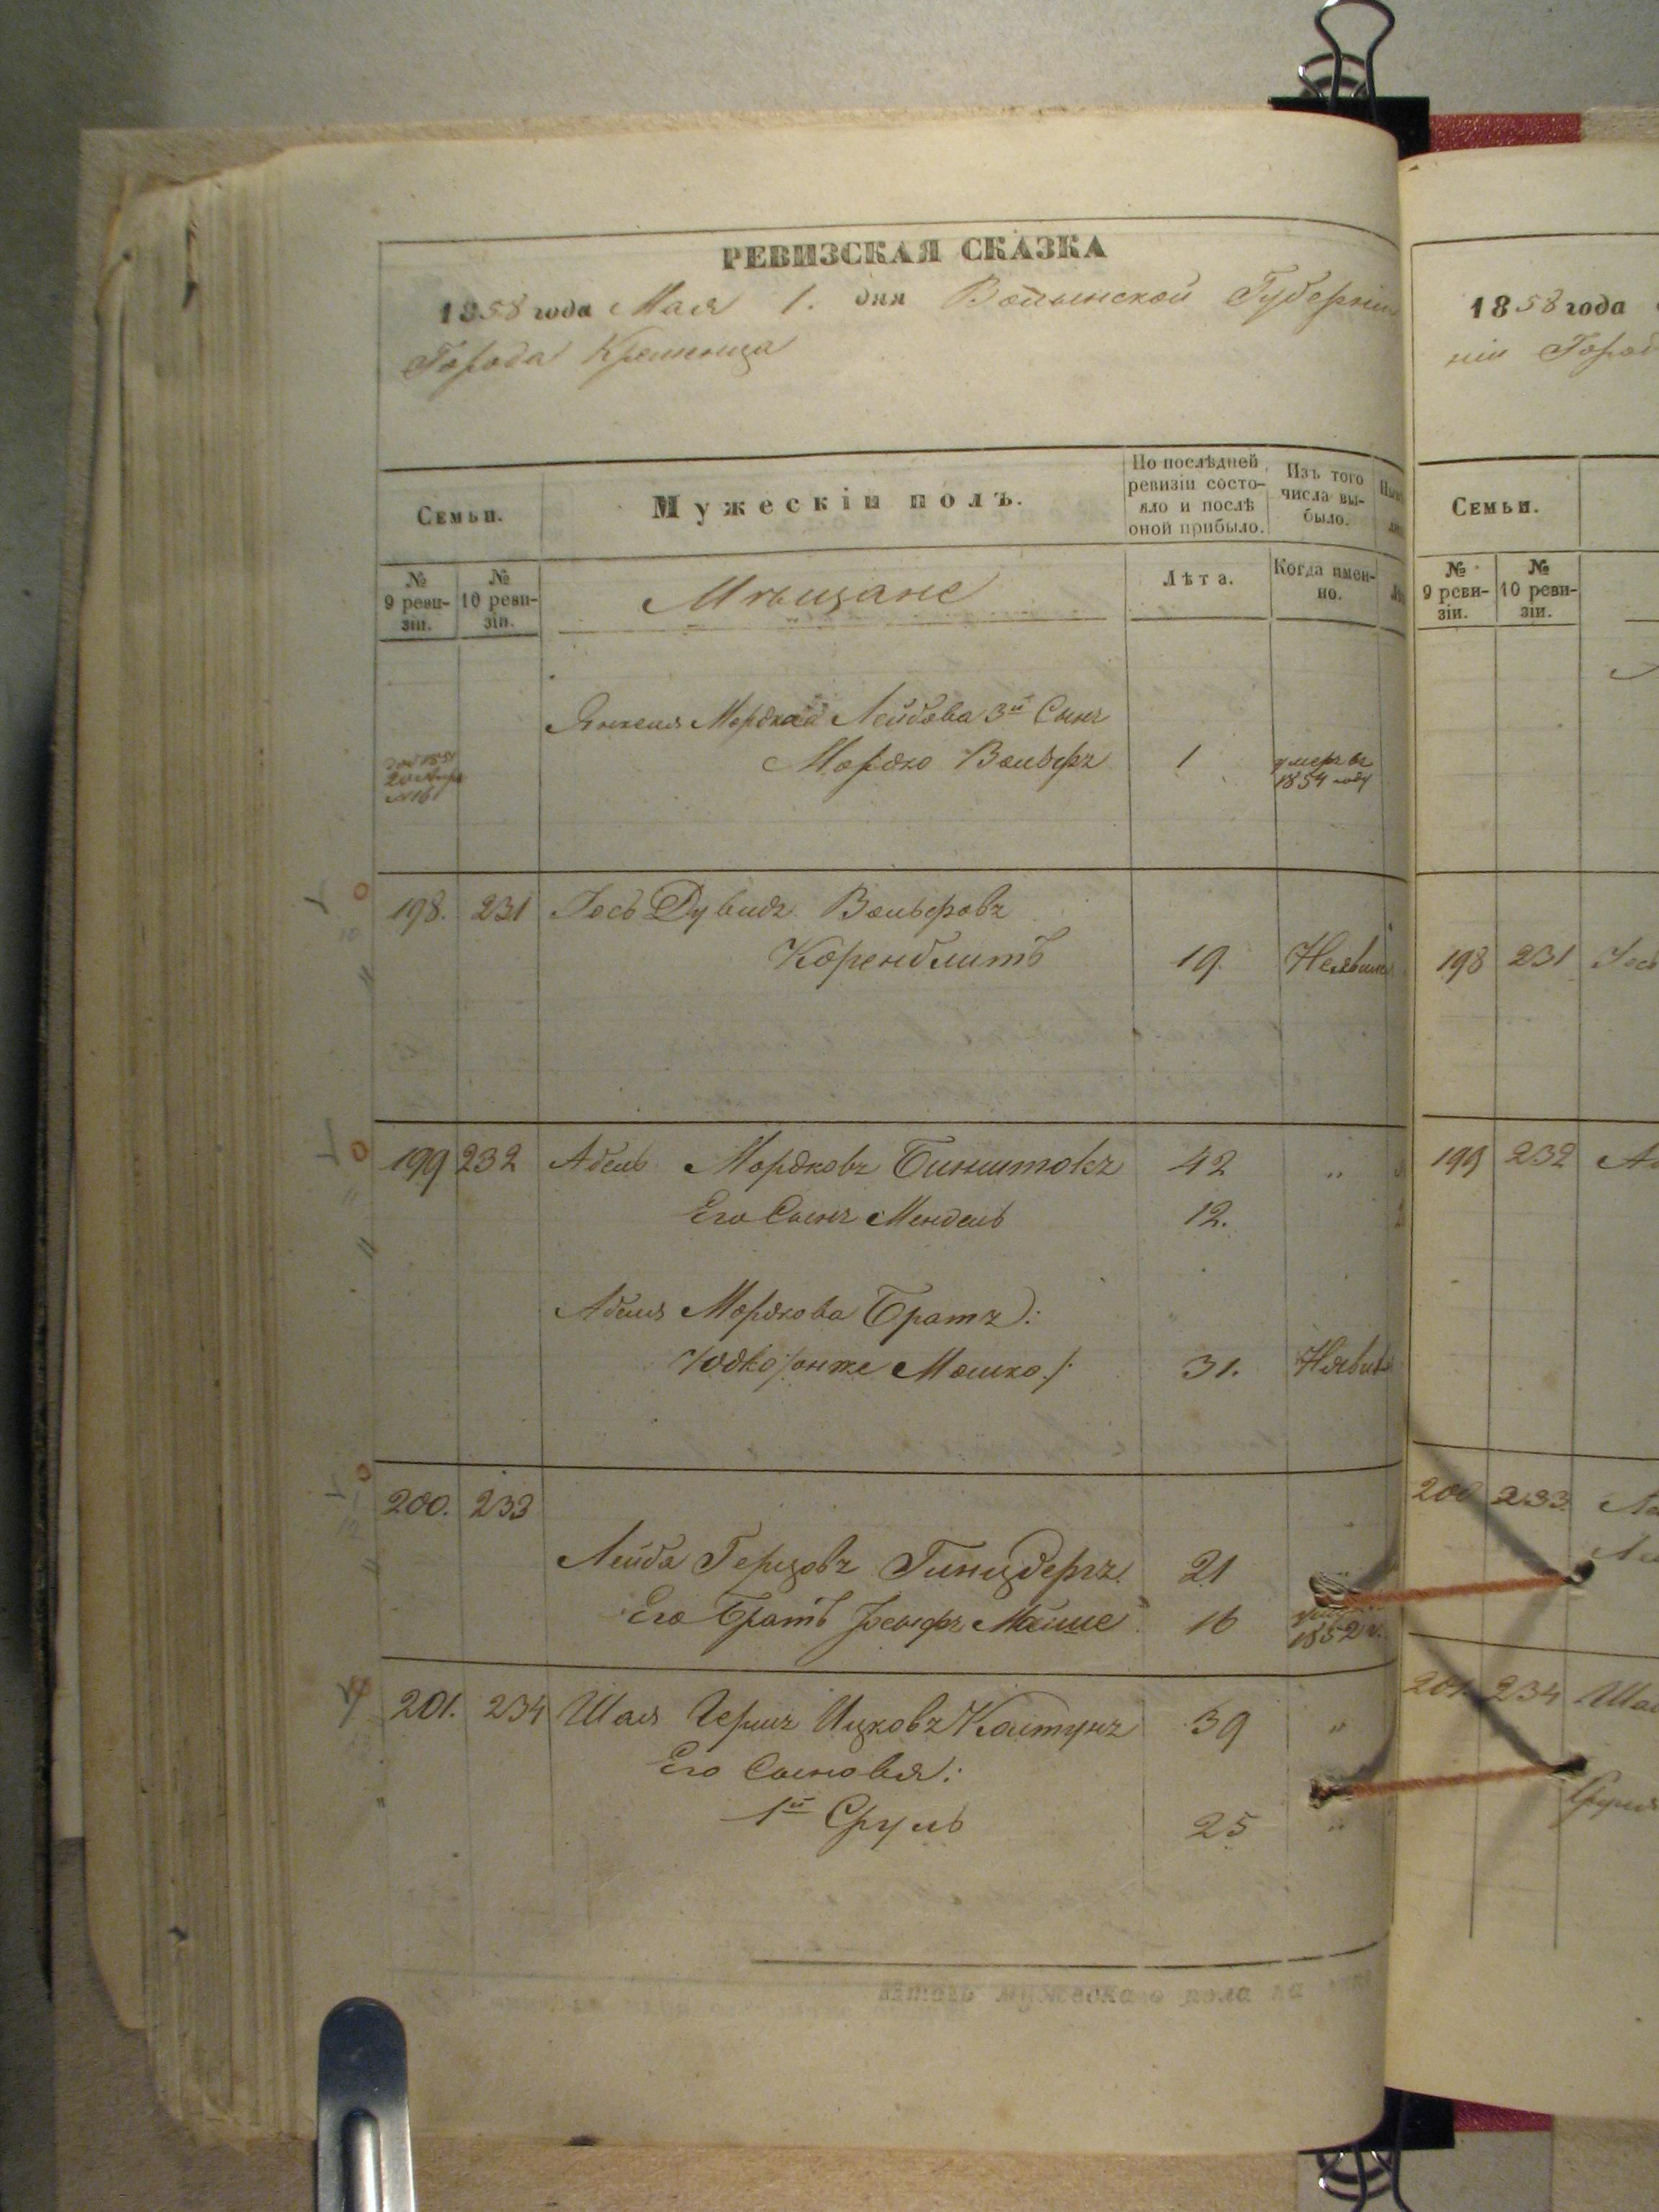 РЕВИЗСКАЯ СКАЗКА
1858 года Мая 1. дня Волынской Губерніи
Города Кременца
Семьи.
Мужескій полъ.
По послѣдней ревизіи состо-
яло и послѣ
оной прибыло.
Изъ того
числа вы-
было.
№
9 реви-
зіи.
№
10 реви-
зіи.
Мѣщане
Лѣта.
Когда имен-
но.
Янкеля Мордка Лейбова 3й Сынъ
Мордко Вольфъ 1 умеръ въ
1854 году
198. 231 Іось Дувидъ Вольфовъ
Коренблитъ 19. Неявил
199 232 Абель Мордковъ Бинштокъ 42 "
Его Сынъ Мендель 12.
Абеля Мордкова Братъ:
Юдко /: онже Мошко :/ 31.
200. 233
Лейба Герцовъ Гинцбергъ 21
Его Братъ Іосифъ Мойше 16
1852 г.
201. 234 Шая Гершъ Ицковъ Колтунъ 39 "
Его Сыновья:
1й Сруль 25 "
1858 года
ніи Город
Семьи.
№
9 реви-
зіи.
№
10 реви-
зіи.
198 231 Іось
199 232 Аб
200 233.
201. 234 Шая
Сруля